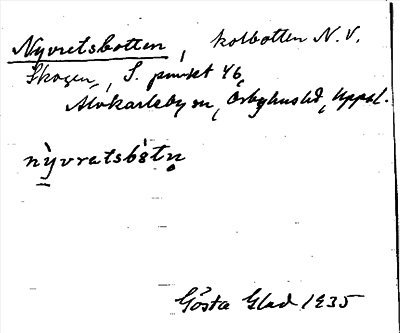 Nyvretsbotten, kolbotten N.V.
Skogen, S. punkt 46,
Älvkarleby sn, Örbyhus hd, Uppsal.
nỳvratsbòtn̥
Gösta Glad 1935